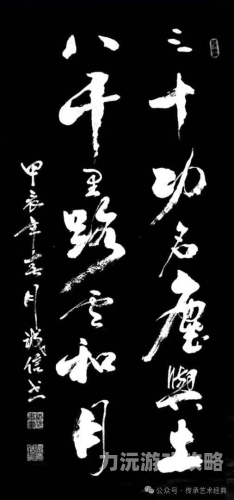 三十功名塵與土
八千里路雲和月
甲辰年春月 信书
公众号·传承艺术经典
力沅游 攻略